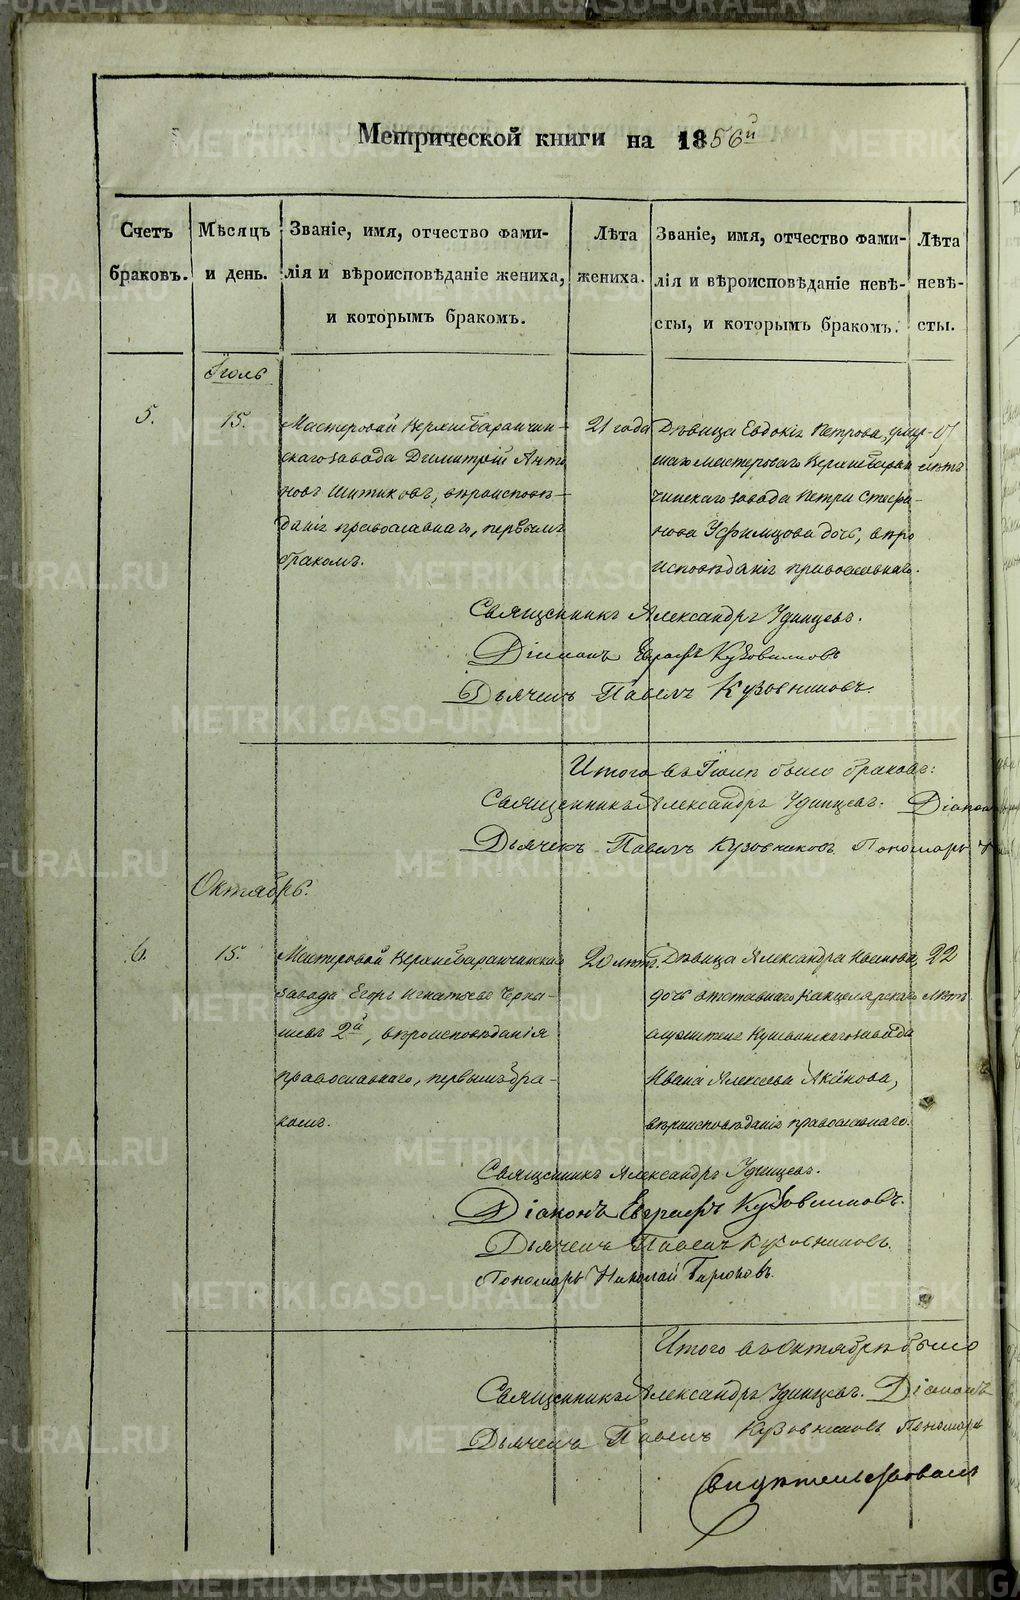 Метрической книги на 1856й
Счетъ браковъ.
Мѣсяцъ и день.
Званіе, имя, отчество фами-
лія и вѣроисповѣданіе жениха,
и которымъ бракомъ.
Лѣта жениха.
Званіе, имя, отчество фами-
лія и вѣроисповѣданіе невѣ-
сты, и которымъ бракомъ.
Лѣта невѣ-
сты.
Іюль
5.
15.
Мастеровой Верхнебаранчин-
скаго завода Димитрій Анто
новъ Шитиковъ, вѣроисповѣ-
данія православнаго, первымъ
бракомъ.
21 года
Дѣвица Евдокія Петрова, умер-
шаго мастероваго Верхнебаран
чинскаго завода Петра Стефа-
нова Уфимцова дочь, вѣро
исповѣданія православнаго.
лѣтъ
Священникъ Александръ Удинцевъ.
Діаконъ Евграфъ Кузовниковъ
Дьячекъ Павелъ Кузовниковъ.
Итого въ Іюлѣ было браковъ:
Священникъ Александръ Удинцевъ. Діаконъ
Дьячекъ Павелъ Кузовниковъ Пономарь
Октябрь.
6.
15.
Мастеровой Верхнебаранчинскаго
завода Егоръ Игнатьевъ Черны-
шевъ 2й, вѣроисповѣданія
православнаго, первымъ бра-
комъ.
20 лѣтъ.
Дѣвица Александра Иванова,
дочь отставнаго Канцелярскаго
служителя Кушвинскаго завода
Ивана Алексѣева Аксёнова,
вѣроисповѣданія православнаго.
22
лѣтъ
Священникъ Александръ Удинцевъ.
Діаконъ Евграфъ Кузовниковъ.
Дьячекъ Павелъ Кузовниковъ.
Пономарь Николай
Итого въ Октябрѣ было
Священникъ Александръ Удинцевъ. Діаконъ
Дьячекъ Павелъ Кузовниковъ Пономарь
Свидѣтельствовалъ
METRIKI.GASO-URAL.RU